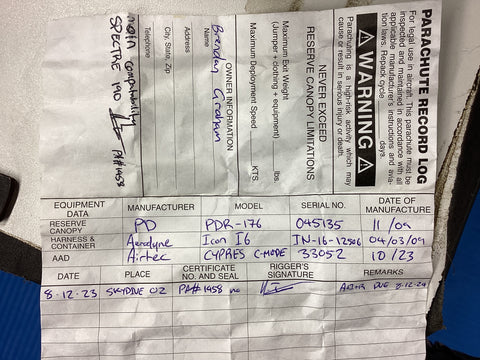 PARACHUTE RECORD LOG
For legal use in aircraft. This parachute must be
inspected and maintained in accordance with all
applicable manufacturer's instructions and avia-
tion laws. Repack cycle days.
WARNING
Parachuting is a high-risk activity which may
cause or result in serious injury or death.
NEVER EXCEED
RESERVE CANOPY LIMITATIONS
Maximum Exit Weight
(Jumper + clothing + equipment) lbs.
Maximum Deployment Speed KTS.
OWNER INFORMATION
Brendan Graham
Name
Address
City, State, Zip
Telephone
main compatability
SPECTRE 190 PA#1458
EQUIPMENT DATA MANUFACTURER MODEL SERIAL NO. DATE OF MANUFACTURE
RESERVE CANOPY PD PDR-176 045135 11/09
HARNESS & CONTAINER Aerodyne Icon I6 IN-16-12506 04/03/09
AAD Airtec CYPRES C-MODE 33052 10/23
DATE PLACE CERTIFICATE NO. AND SEAL RIGGER'S SIGNATURE REMARKS
8-12-23 SKYDIVE OZ PA#1458 DUE 8-12-24